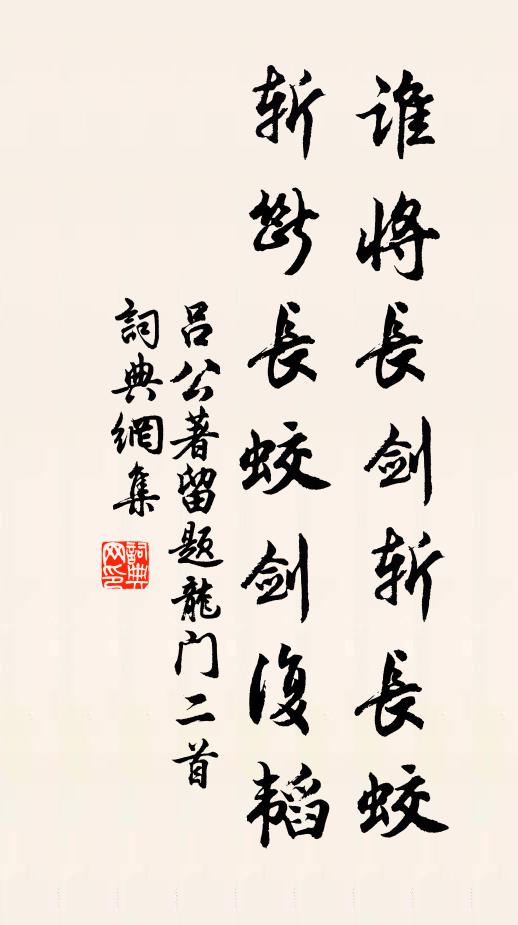 誰將長劍斬長蛟
斬斷長蛟劍復韜
呂公著留題龍门二首
詞典網集
詞典网印